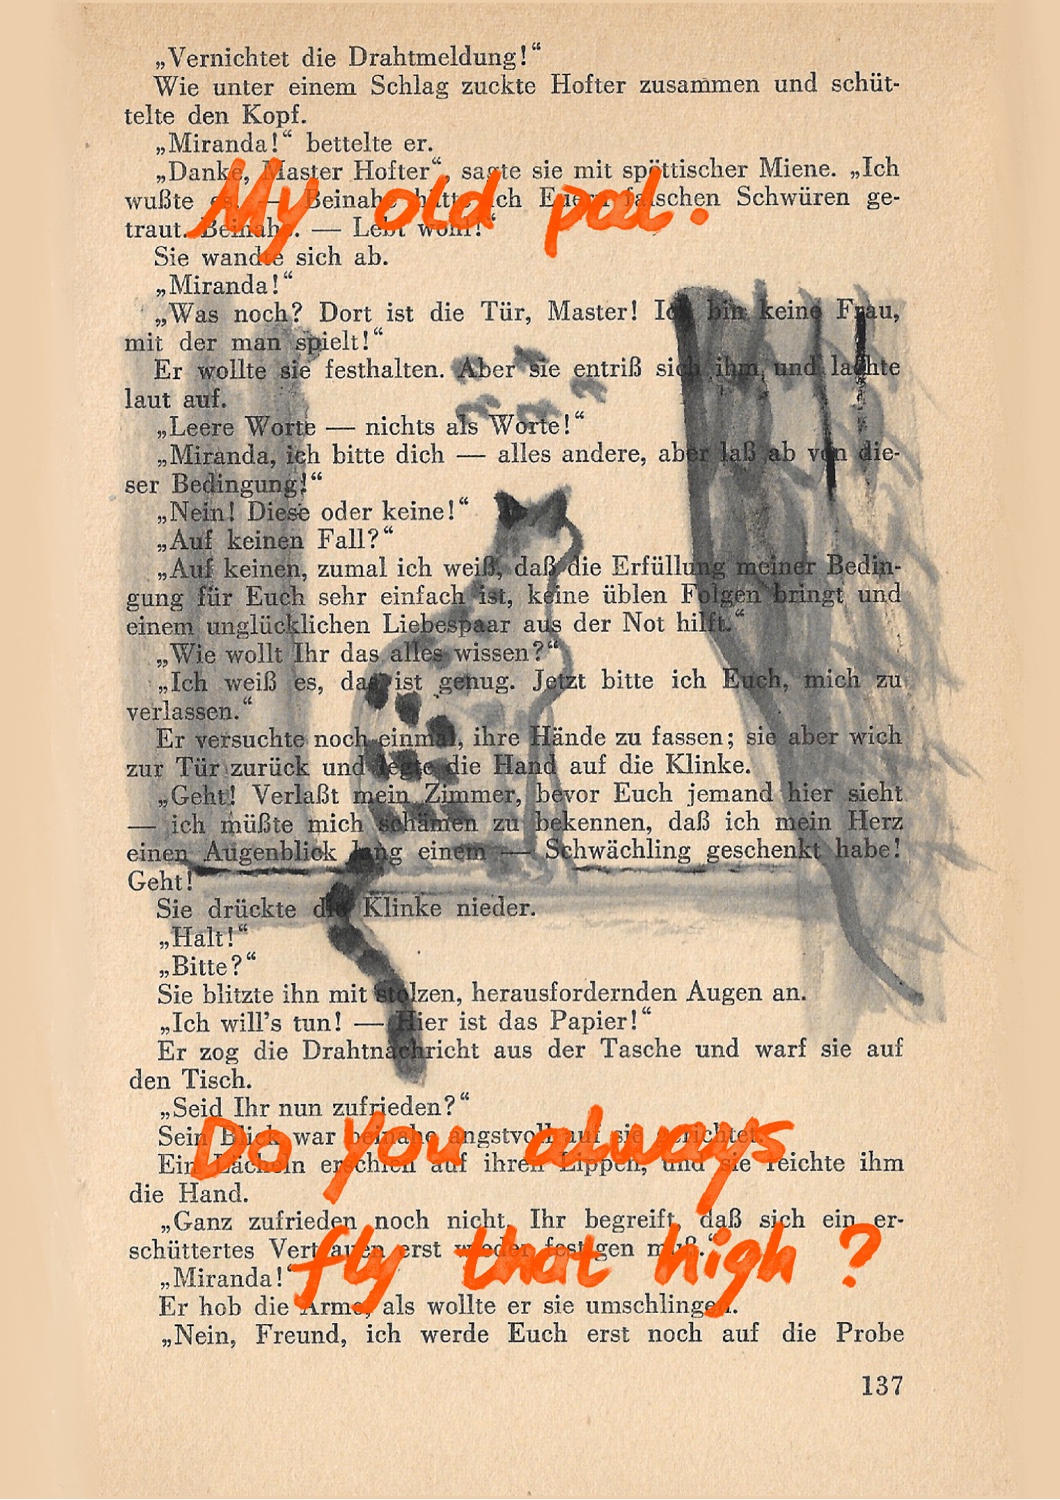 „Vernichtet die Drahtmeldung!“
Wie unter einem Schlag zuckte Hofter zusammen und schüt-
telte den Kopf.
„Miranda!“ bettelte er.
„Danke, Master Hofter“, sagte sie mit spöttischer Miene. „Ich
wußte es. — Beinahe hätte ich Euern falschen Schwüren ge-
traut. Beinahe. — Lebt wohl!“
My old pal.
Sie wandte sich ab.
„Miranda!“
„Was noch? Dort ist die Tür, Master! Ich bin keine Frau,
mit der man spielt!“
Er wollte sie festhalten. Aber sie entriß sich ihm, und lachte
laut auf.
„Leere Worte — nichts als Worte!“
„Miranda, ich bitte dich — alles andere, aber laß ab von die-
ser Bedingung!“
„Nein! Diese oder keine!“
„Auf keinen Fall?“
„Auf keinen, zumal ich weiß, daß die Erfüllung meiner Bedin-
gung für Euch sehr einfach ist, keine üblen Folgen bringt und
einem unglücklichen Liebespaar aus der Not hilft.“
„Wie wollt Ihr das alles wissen?“
„Ich weiß es, das ist genug. Jetzt bitte ich Euch, mich zu
verlassen.“
Er versuchte noch einmal, ihre Hände zu fassen; sie aber wich
zur Tür zurück und legte die Hand auf die Klinke.
„Geht! Verlaßt mein Zimmer, bevor Euch jemand hier sieht
— ich müßte mich schämen zu bekennen, daß ich mein Herz
einen Augenblick lang einem — Schwächling geschenkt habe!
Geht!
Sie drückte die Klinke nieder.
„Halt!“
„Bitte?“
Sie blitzte ihn mit stolzen, herausfordernden Augen an.
„Ich will's tun! — Hier ist das Papier!“
Er zog die Drahtnachricht aus der Tasche und warf sie auf
den Tisch.
„Seid Ihr nun zufrieden?“
Sein Blick war beinahe angstvoll auf sie gerichtet.
Do you always
Ein Lächeln erschien auf ihren Lippen, und sie reichte ihm
die Hand.
„Ganz zufrieden noch nicht, Ihr begreift, daß sich ein er-
schüttertes Vertrauen erst wieder festigen muß.“
fly that high?
„Miranda!“
Er hob die Arme, als wollte er sie umschlingen.
„Nein, Freund, ich werde Euch erst noch auf die Probe
137